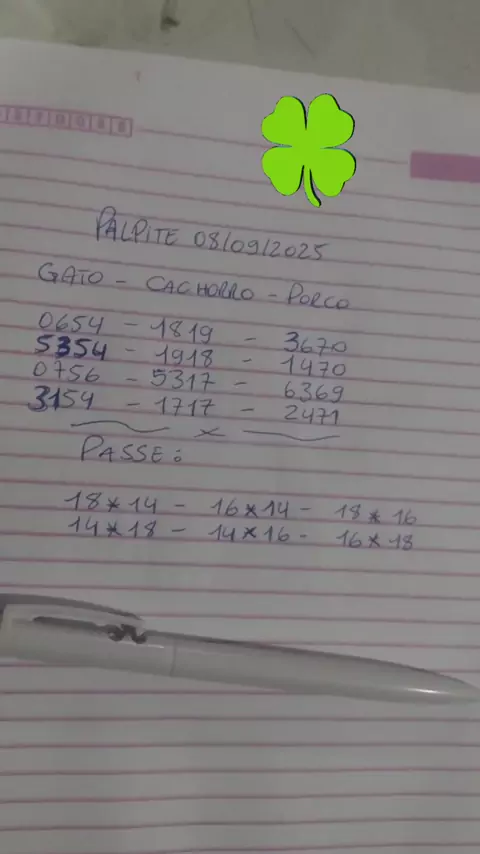 PALPITE 08/09/2025
GATO - CACHORRO - PORCO
0654 - 1819 - 3670
5354 - 1918 - 1470
0756 - 5317 - 6369
3154 - 1717 - 2471
x
PASSE:
18*14 - 16*14 - 18*16
14*18 - 14*16 - 16*18